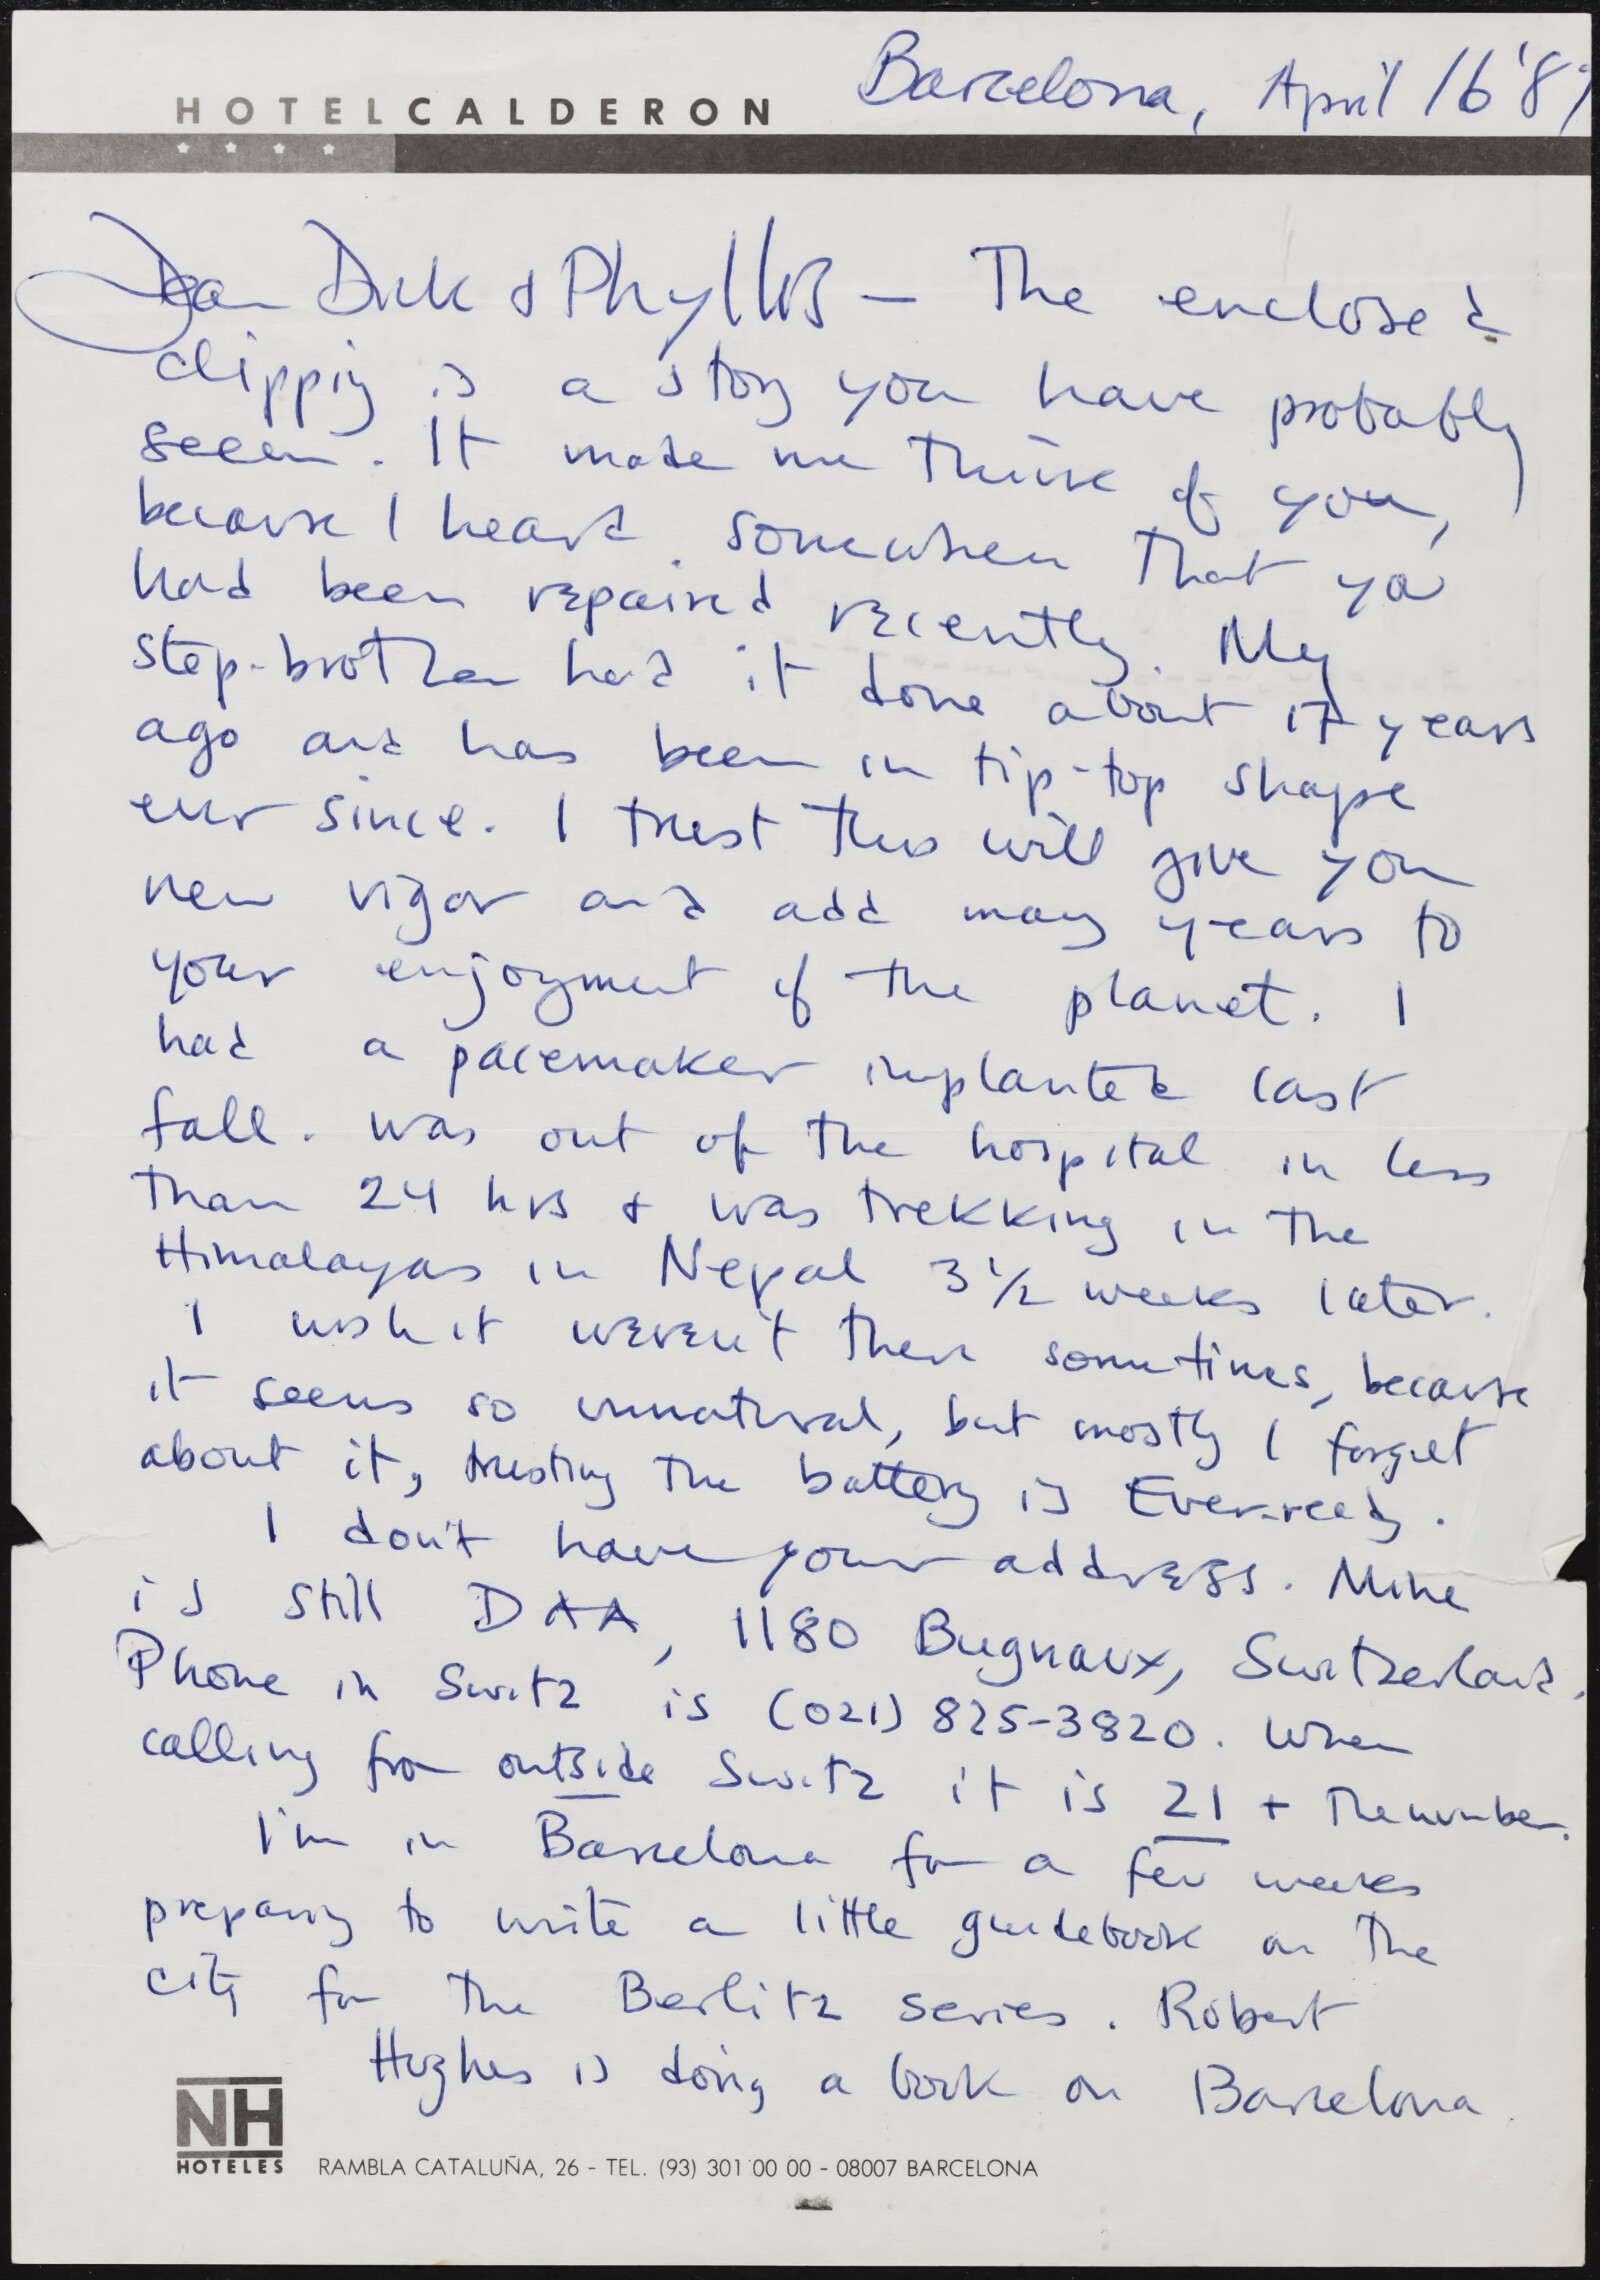 HOTEL CALDERON
Barcelona, April 16 '89
Dear Dick & Phyllis — The enclosed
clipping is a story you have probably
seen. It made me think of you,
because I heard somewhere that you
had been repaired recently. My
step-brother had it done about 17 years
ago and has been in tip-top shape
ever since. I trust this will give you
new vigor and add many years to
your enjoyment of the planet. I
had a pacemaker implanted last
fall. was out of the hospital in less
than 24 hrs & was trekking in the
Himalayas in Nepal 3 1/2 weeks later.
I wish it weren't there sometimes, because
it seems so unnatural, but mostly I forget
about it, trusting the battery is Ever-ready.
I don't have your address. Mine
is still DAA, 1180 Bugnaux, Switzerland.
Phone in Switz is (021) 825-3820. When
calling from outside Switz it is 21 + the number.
I'm in Barcelona for a few weeks
preparing to write a little guidebook on the
city for the Berlitz series. Robert
Hughes is doing a book on Barcelona
NH
HOTELES
RAMBLA CATALUÑA, 26 - TEL. (93) 301 00 00 - 08007 BARCELONA